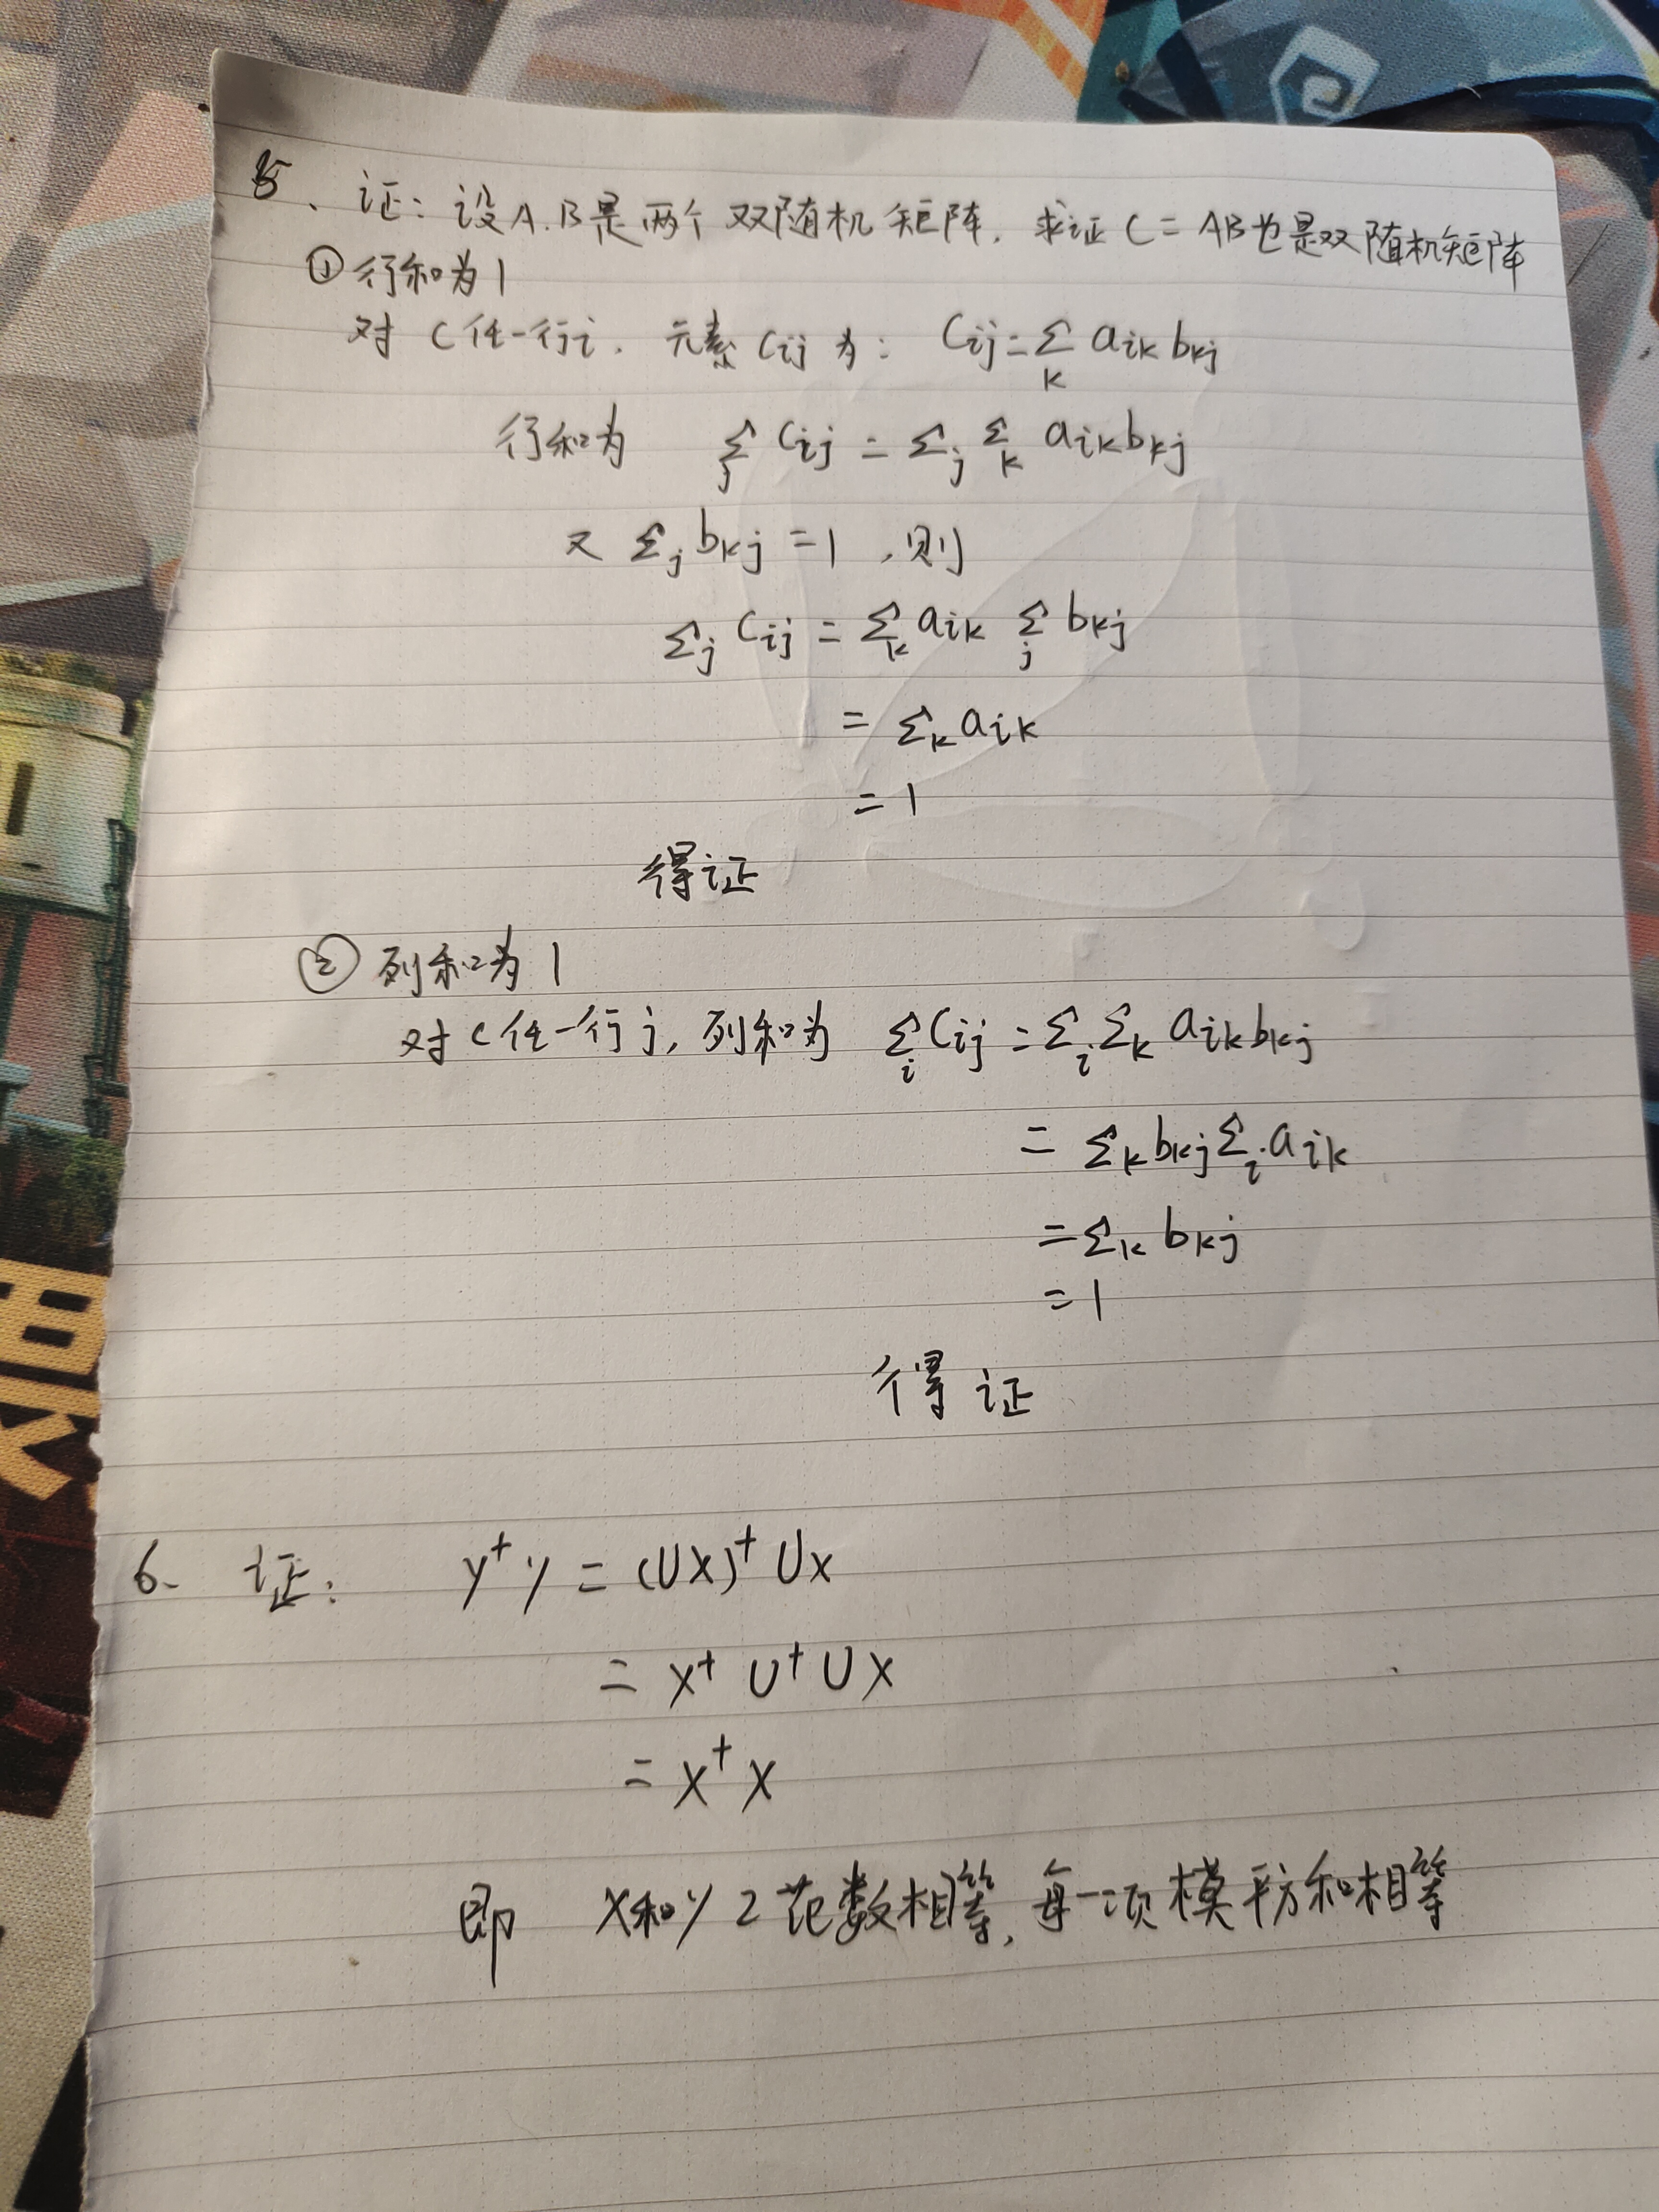 5、证：设A.B是两个双随机矩阵，求证C=AB也是双随机矩阵
① 行和为1
对C任一行i，元素Cij为：Cij=Σ_k aik bkj
行和为 Σ_j Cij = Σ_j Σ_k aik bkj
又 Σ_j bkj = 1，则
Σ_j Cij = Σ_k aik Σ_j bkj
= Σ_k aik
= 1
得证
② 列和为1
对C任一行j，列和为 Σ_i Cij = Σ_i Σ_k aik bkj
= Σ_k bkj Σ_i aik
= Σ_k bkj
= 1
得证
6. 证： y⁺y = (Ux)⁺Ux
= x⁺U⁺Ux
= x⁺x
即 x和y 2范数相等，每一项模平方和相等